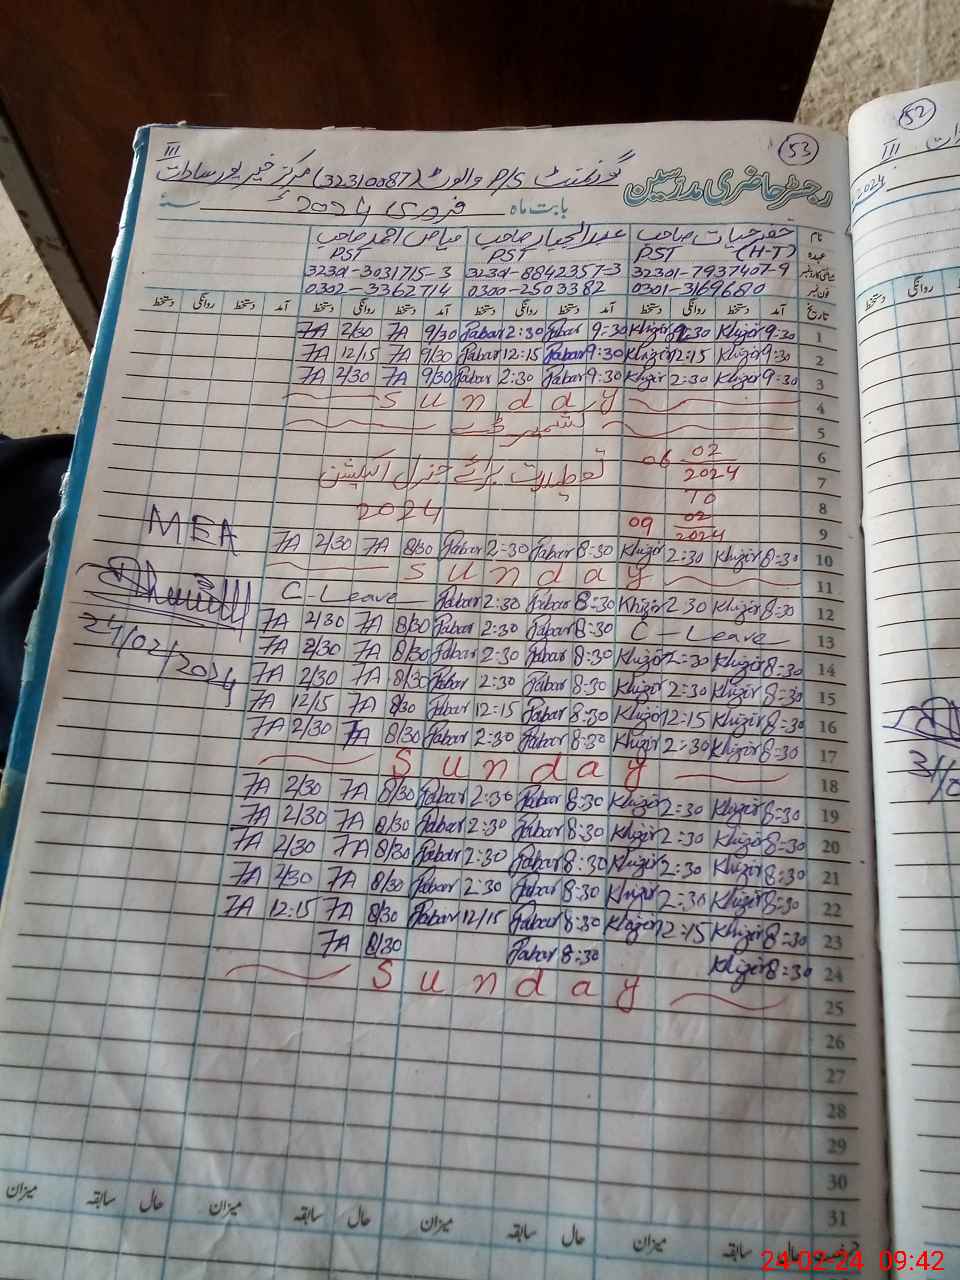 53
III
رجسٹر حاضری مدرسین گورنمنٹ P/S والوٹ (32310087) مرکز خیر پور سادات
بابت ماہ فروری 2024 سنہ
نام خضر حیات صاحب عبدالجبار صاحب فیاض احمد صاحب
عہدہ PST (H-T) PST PST
32301-7937407-9 32301-8842357-3 32301-3031715-3
فون نمبر 0301-3169680 0300-2503382 0302-3362714
تاریخ آمد دستخط روانگی دستخط آمد دستخط روانگی دستخط آمد دستخط روانگی دستخط آمد دستخط روانگی دستخط
1 9:30 Khizir 2:30 Khizir 9:30 Jabar 2:30 Jabar 9/30 FA 2/30 FA
2 9:30 Khizir 12:15 Khizir 9:30 Jabar 12:15 Jabar 9/30 FA 12/15 FA
3 9:30 Khizir 2:30 Khizir 9:30 Jabar 2:30 Jabar 9/30 FA 2/30 FA
4 Sunday
5 کشمیر ڈے
6 06 02
7 2024 تعطیلات برائے جنرل الیکشن
8 TO 2024
9 09 02 2024
10 8:30 Khizir 2:30 Khizir 8:30 Jabar 2:30 Jabar 8/30 FA 2/30 FA
MEA
11 Sunday
12 8:30 Khizir 2:30 Khizir 8:30 Jabar 2:30 Jabar C-Leave
13 C-Leave 8:30 Jabar 2:30 Jabar 8/30 FA 2/30 FA
24/02/2024
14 8:30 Khizir 2:30 Khizir 8:30 Jabar 2:30 Jabar 8/30 FA 2/30 FA
15 8:30 Khizir 2:30 Khizir 8:30 Jabar 2:30 Jabar 8/30 FA 2/30 FA
16 8:30 Khizir 12:15 Khizir 8:30 Jabar 12:15 Jabar 8/30 FA 12/15 FA
17 8:30 Khizir 2:30 Khizir 8:30 Jabar 2:30 Jabar 8/30 FA 2/30 FA
18 Sunday
19 8:30 Khizir 2:30 Khizir 8:30 Jabar 2:30 Jabar 8/30 FA 2/30 FA
20 8:30 Khizir 2:30 Khizir 8:30 Jabar 2:30 Jabar 8/30 FA 2/30 FA
21 8:30 Khizir 2:30 Khizir 8:30 Jabar 2:30 Jabar 8/30 FA 2/30 FA
22 8:30 Khizir 2:30 Khizir 8:30 Jabar 2:30 Jabar 8/30 FA 2/30 FA
23 8:30 Khizir 12:15 Khizir 8:30 Jabar 12/15 Jabar 8/30 FA 12:15 FA
24 8:30 Khizir 8:30 Jabar 8/30 FA
25 Sunday
26
27
28
29
30
31
حال سابقہ میزان حال سابقہ میزان حال سابقہ میزان حال سابقہ میزان
52
III
2024
روانگی دستخط
24-02-24 09:42